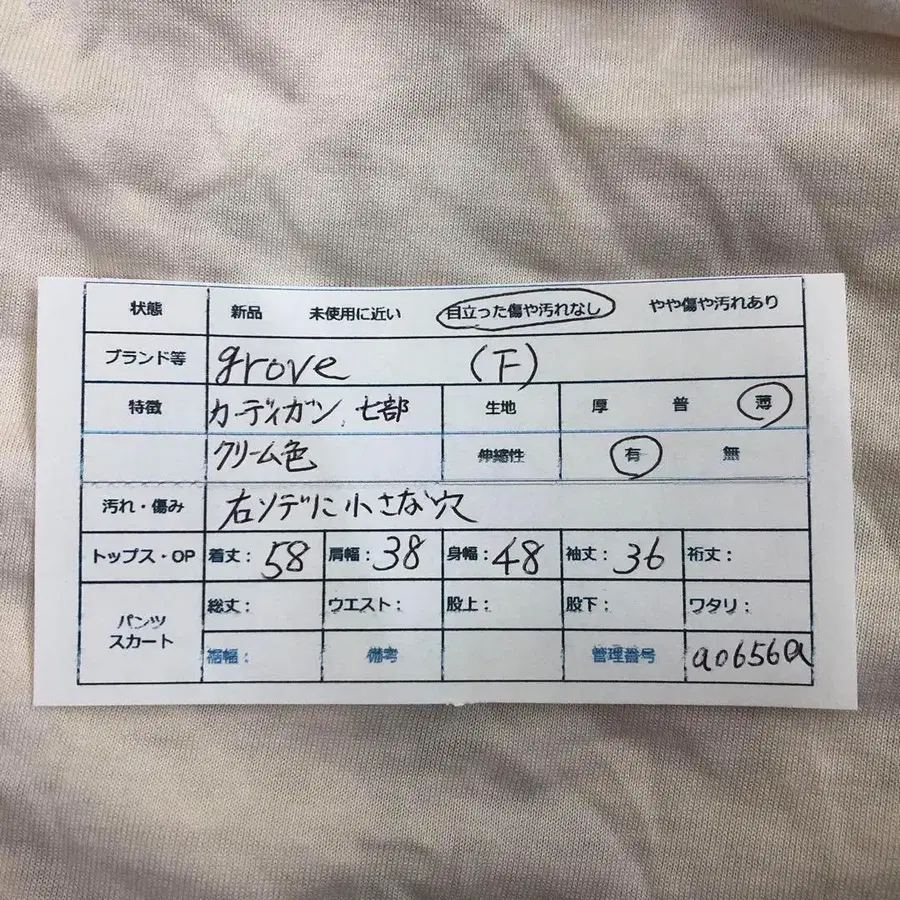 状態 新品 未使用に近い 目立った傷や汚れなし やや傷や汚れあり
ブランド等 grove (F)
特徴 カーディガン、七部 生地 厚 普 薄
クリーム色 伸縮性 有 無
汚れ・傷み 右ソデに小さな穴
トップス・OP 着丈: 58 肩幅: 38 身幅: 48 袖丈: 36 裄丈:
パンツ スカート 総丈: ウエスト: 股上: 股下: ワタリ:
裾幅: 備考 管理番号 a0656a